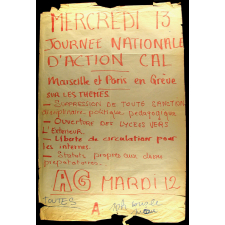 MERCREDI 13
JOURNEE NATIONALE
D'ACTION CAL
Marseille et Paris en Grève
SUR LES THEMES.
— SUPPRESSION DE TOUTE SANCTION
disciplinaire, politique, pédagogique
— OUVERTURE DES LYCEES VERS
L'Exterieur.
— Liberté de circulation pour
les internes.
— Statuts propres aux classes
préparatoires.
AG MARDI 12
TOUTES
A